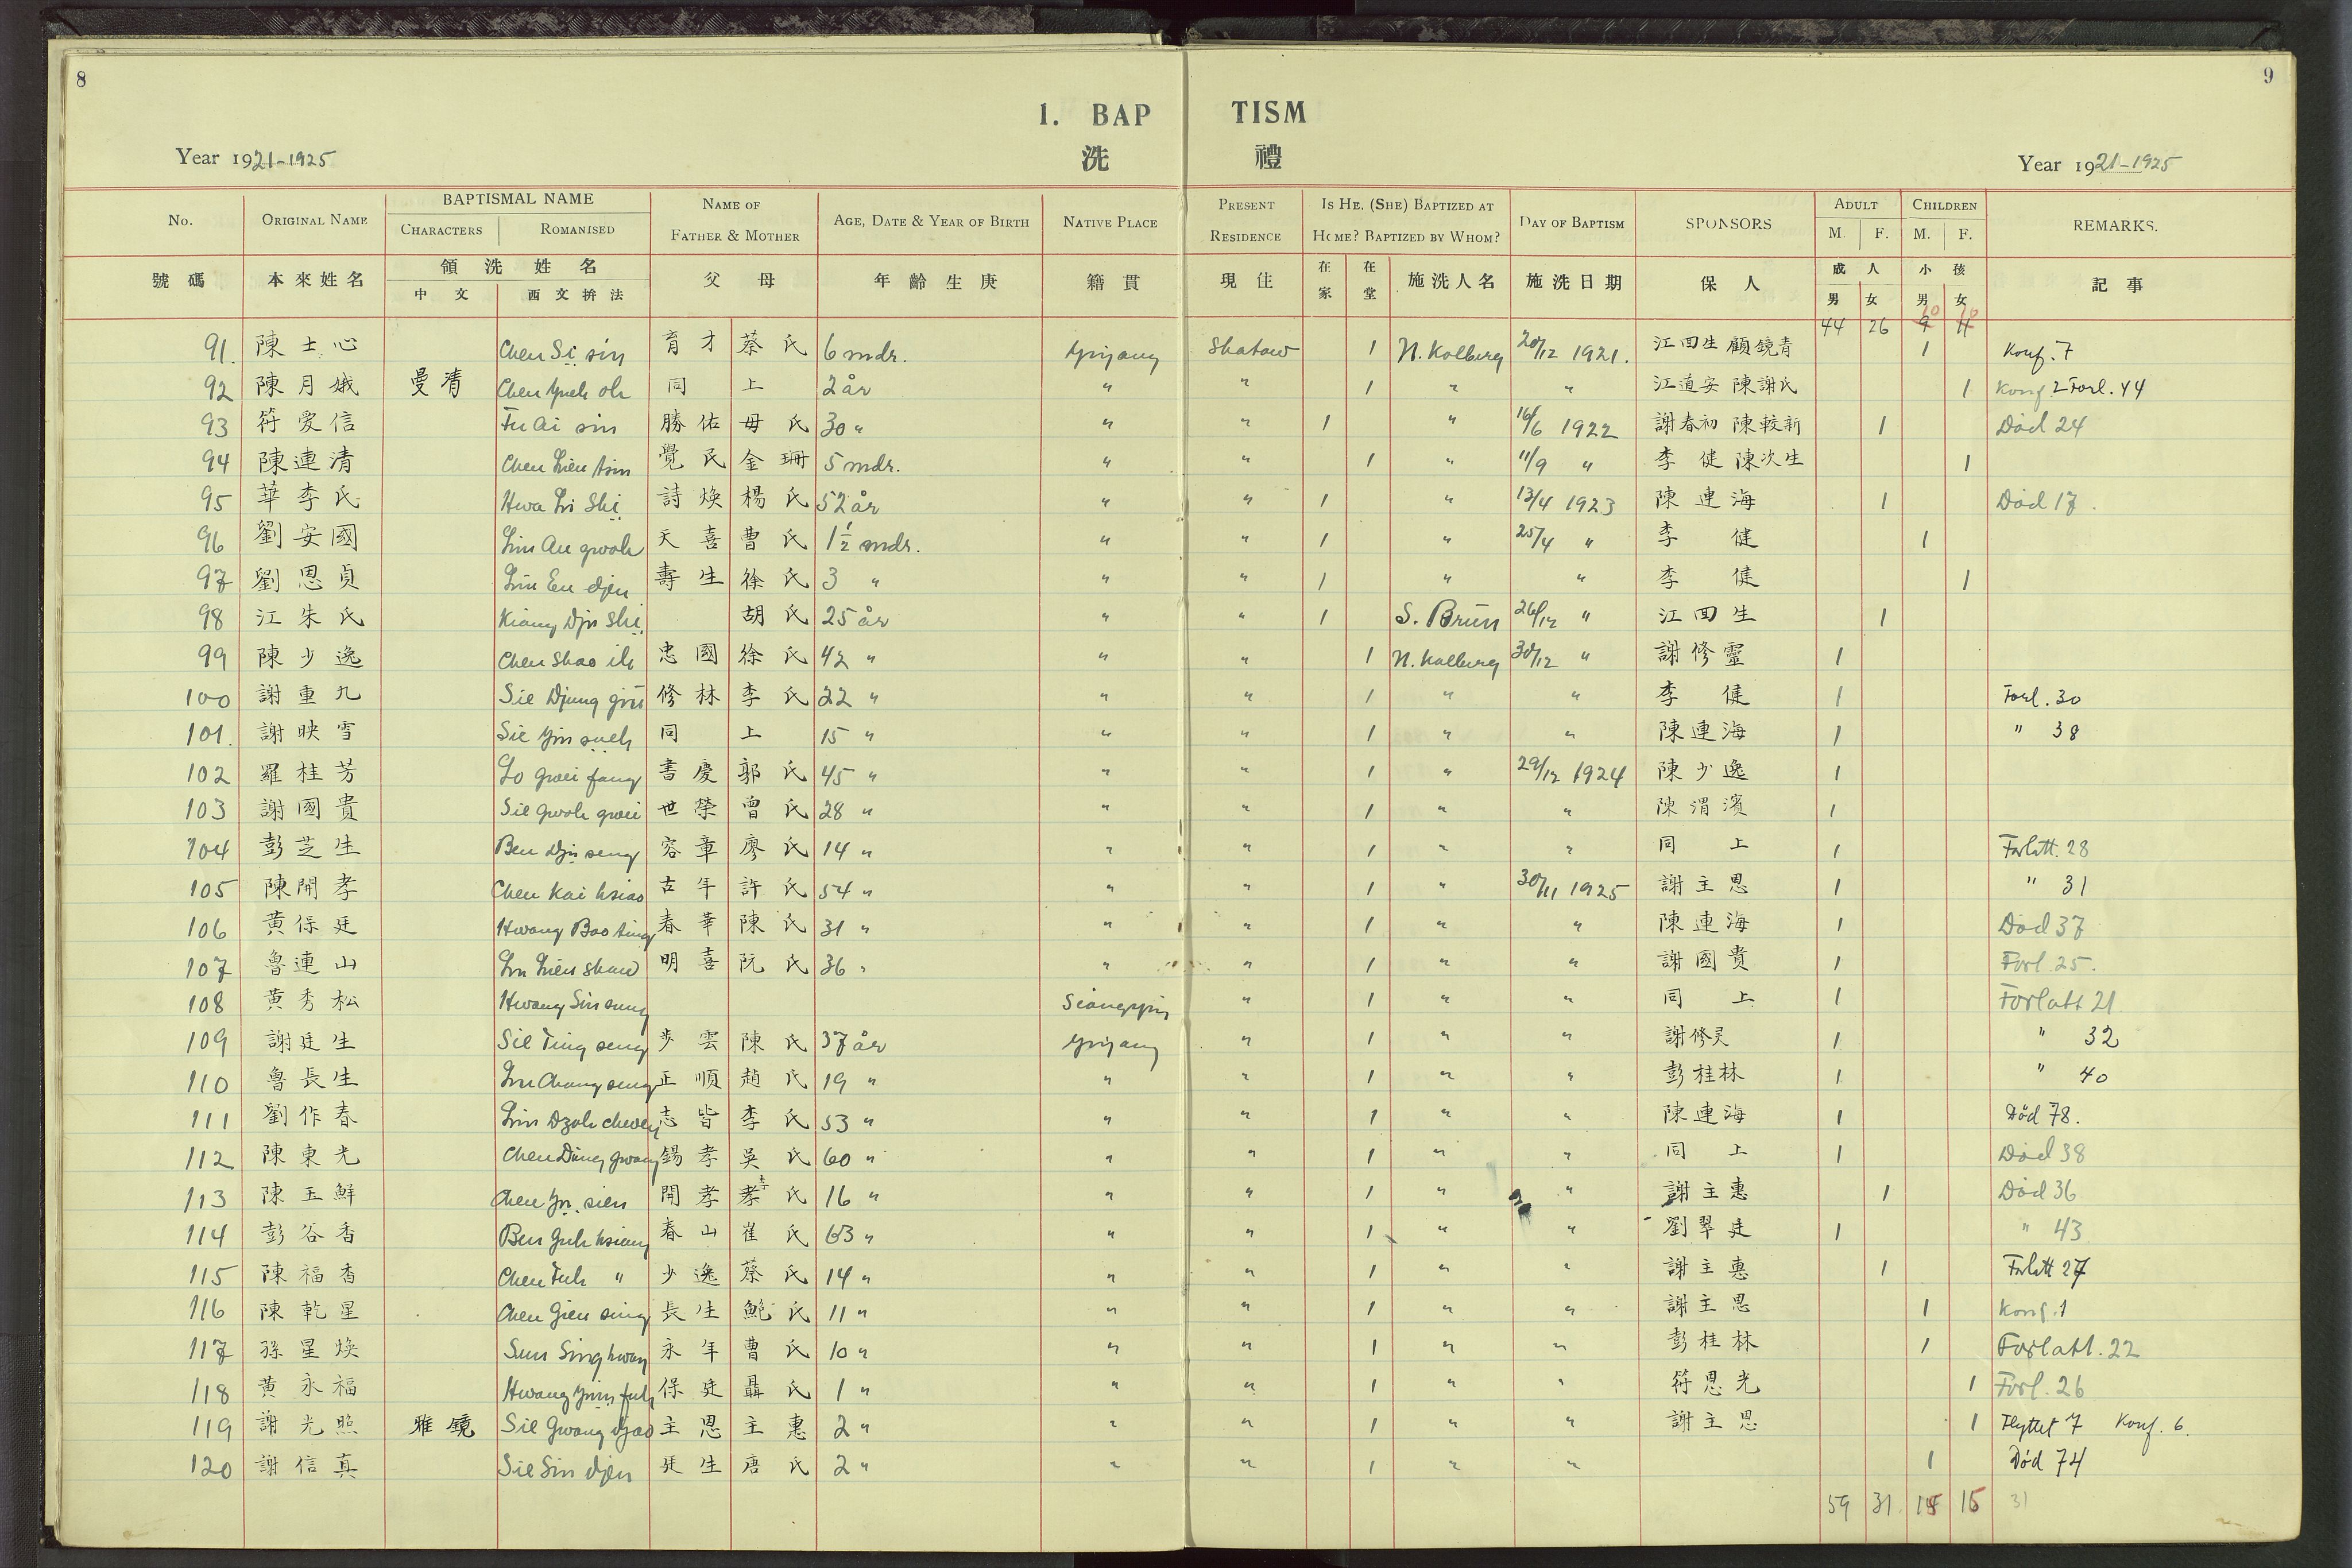 8
9
1. BAP TISM
洗 禮
Year 1921-1925
Year 1921-1925
No. ORIGINAL NAME BAPTISMAL NAME CHARACTERS ROMANISED NAME OF FATHER & MOTHER AGE, DATE & YEAR OF BIRTH NATIVE PLACE PRESENT RESIDENCE IS HE. (SHE) BAPTIZED AT HOME? BAPTIZED BY WHOM? DAY OF BAPTISM SPONSORS ADULT M. F. CHILDREN M. F. REMARKS.
號碼 本來姓名 領洗姓名 中文 西文拚法 父母 年齡生庚 籍貫 現住 在家 在堂 施洗人名 施洗日期 保人 成人 男 女 小孩 男 女 記事
44 26 9 11 10 10
91. 陳士心 Chen Si sin 育才 蔡氏 6 mdr. Yiyang Shatow 1 N. Kolberg 20/12 1921. 江回生 顧鏡青 1 Konf. 7
92 陳月娥 曼清 Chen Yueh oh 同上 2 år " " 1 " " 江道安 陳謝氏 1 Konf. 2 Forl. 44
93 符愛信 Fu Ai sin 勝佑 毋氏 30 " " " 1 " 16/6 1922 謝春初 陳較新 1 Död 24
94 陳連清 Chen Lien tsin 覺民 金珊 5 mdr. " " 1 " 11/9 " 李健 陳次生 1
95 華李氏 Hwa Li Shi 詩煥 楊氏 52 år " " 1 " 13/4 1923 陳連海 1 Död 17.
96 劉安國 Liu An gwoh 天喜 曹氏 1½ mdr. " " 1 " 25/4 " 李健 1
97 劉恩貞 Liu En djen 壽生 徐氏 3 " " " 1 " " 李健 1
98 江朱氏 Kiang Dju Shi 胡氏 25 år " " 1 S. Bruun 26/12 " 江回生 1
99 陳少逸 Chen Shao ih 忠國 徐氏 42 " " " 1 N. Kolberg 30/12 " 謝修靈 1
100 謝重九 Sie Djung giu 修林 李氏 22 " " " 1 " " 李健 1 Forl. 30
101. 謝映雪 Sie Yin sueh 同上 15 " " " 1 " " 陳連海 1 " 38
102 羅桂芳 Lo gwei fang 書慶 郭氏 45 " " " 1 " 29/12 1924 陳少逸 1
103 謝國貴 Sie gwoh gwei 世榮 曾氏 28 " " " 1 " " 陳渭濱 1
104 彭芝生 Ben Dji seng 容章 廖氏 14 " " " 1 " " 同上 1 Forlatt. 28
105 陳開孝 Chen Kai hsiao 古年 許氏 54 " " " 1 " 30/11 1925 謝主恩 1 " 31
106 黃保廷 Hwang Bao ting 春華 陳氏 31 " " " 1 " " 陳連海 1 Död 37
107 魯連山 Lu Lien shan 明喜 阮氏 36 " " " 1 " " 謝國貴 1 Forl. 25.
108 黃秀松 Hwang Siu sung Siangyin " 1 " " 同上 1 Forlatt 21
109 謝廷生 Sie Ting seng 步雲 陳氏 37 år Yiyang " 1 " " 謝修灵 1 " 32
110 魯長生 Lu Chang seng 正順 趙氏 19 " " " 1 " " 彭桂林 1 " 40
111 劉作春 Liu Dzoh chwen 志皆 李氏 53 " " " 1 " " 陳連海 1 Död 78.
112 陳東光 Chen Dung gwang 錫孝 吳氏 60 " " " 1 " " 同上 1 Död 38
113 陳玉鮮 Chen Yu sien 開孝 氏 16 " " " 1 " " 謝主惠 1 Död 36
114 彭谷香 Ben Guh hsiang 春山 崔氏 63 " " " 1 " " 劉翠廷 1 " 43
115 陳福香 Chen Fuh " 少逸 蔡氏 14 " " " 1 " " 謝主惠 1 Forlatt 27
116 陳乾星 Chen Gien sing 長生 鮑氏 11 " " " 1 " " 謝主恩 1 Konf. 1
117 孫星煥 Sun Sing hwan 永年 曹氏 10 " " " 1 " " 彭桂林 1 Forlatt. 22
118 黃永福 Hwang Yuin fuh 保廷 聶氏 1 " " " 1 " " 符恩光 1 Forl. 26
119 謝光照 雅鏡 Sie Gwang djao 主恩 主惠 2 " " " 1 " " 謝主恩 1 Flyttet 7 Konf. 6.
120 謝信真 Sie Sin djen 廷生 唐氏 2 " " " 1 " " 1 Död 74
59 31 15 15 31